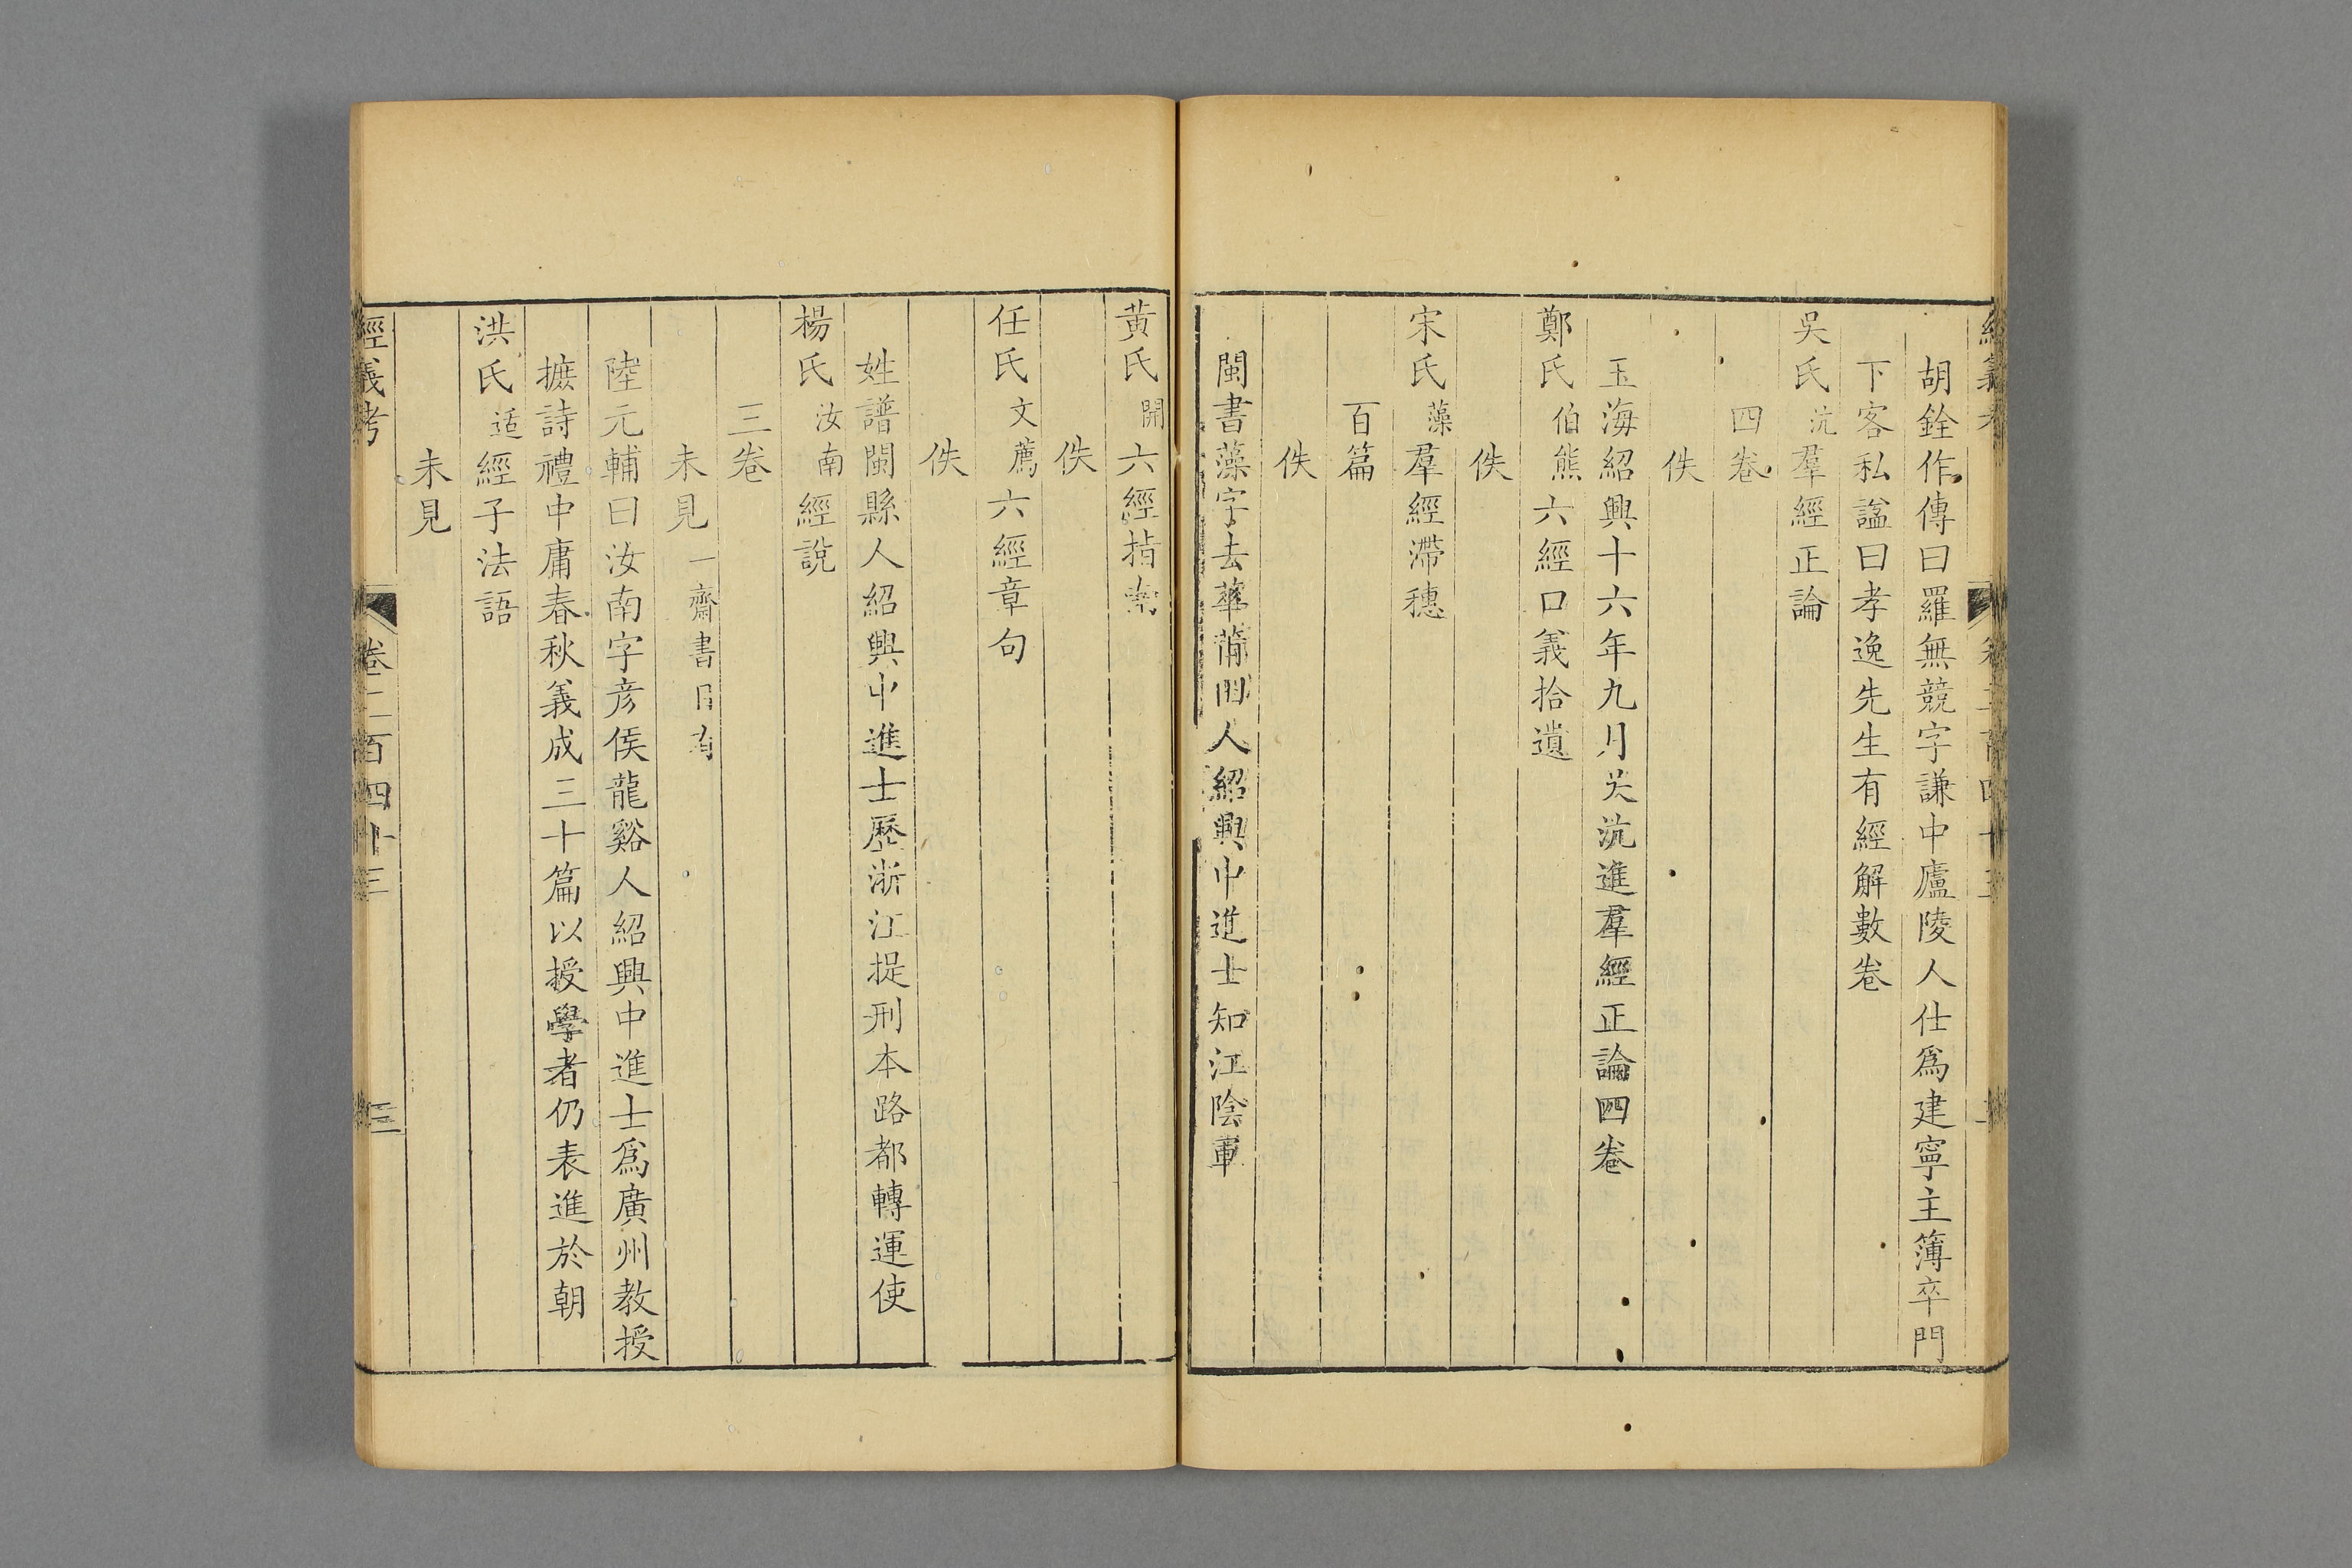 胡銓作傳曰羅無競字謙中廬陵人仕爲建寧主簿卒門
下客私謚曰孝逸先生有經解數卷
吳氏沆羣經正論
四卷
佚
玉海紹興十六年九月吳沆進羣經正論四卷
鄭氏伯熊六經口義拾遺
佚
宋氏藻羣經滯穗
百篇
佚
閩書藻字去華莆田人紹興中進士知江陰軍
黃氏開六經指南
佚
任氏文薦六經章句
佚
姓譜閩縣人紹興中進士歷浙江提刑本路都轉運使
楊氏汝南經說
三卷
未見一齋書目有
陸元輔曰汝南字彥侯龍谿人紹興中進士爲廣州教授
摭詩禮中庸春秋義成三十篇以授學者仍表進於朝
洪氏适經子法語
未見
經義考 卷二百四十三 三